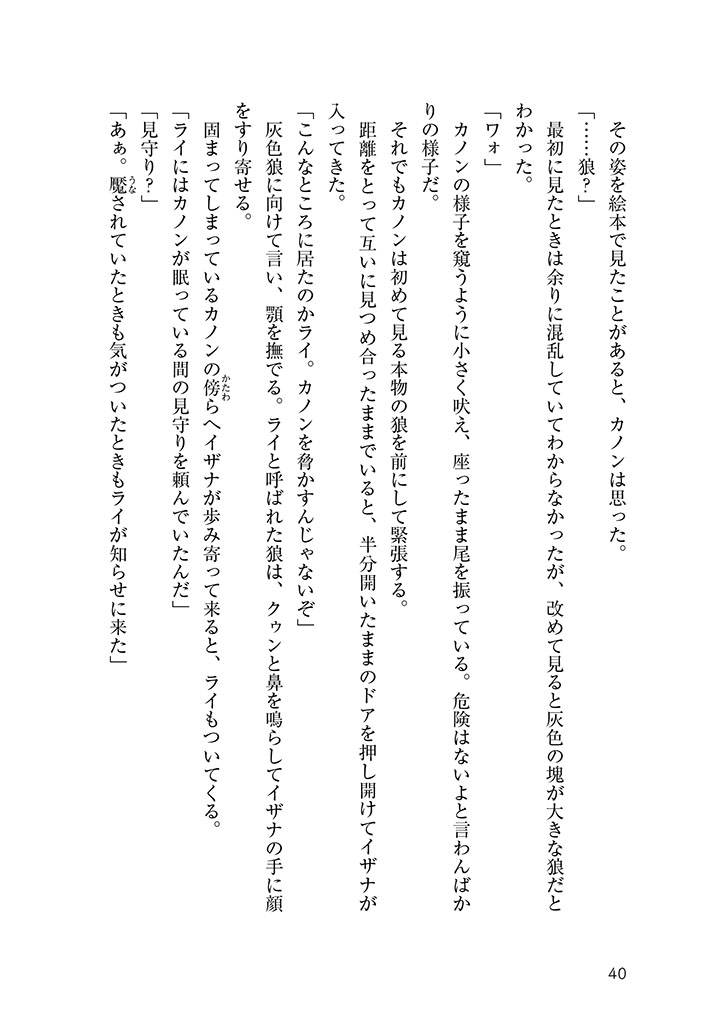 その姿を絵本で見たことがあると、カノンは思った。
「……狼？」
最初に見たときは余りに混乱していてわからなかったが、改めて見ると灰色の塊が大きな狼だと
わかった。
「ワォ」
カノンの様子を窺うように小さく吠え、座ったまま尾を振っている。危険はないよと言わんばか
りの様子だ。
それでもカノンは初めて見る本物の狼を前にして緊張する。
距離をとって互いに見つめ合ったままでいると、半分開いたままのドアを押し開けてイザナが
入ってきた。
「こんなところに居たのかライ。カノンを脅かすんじゃないぞ」
灰色狼に向けて言い、顎を撫でる。ライと呼ばれた狼は、クゥンと鼻を鳴らしてイザナの手に顔
をすり寄せる。
固まってしまっているカノンの傍らへイザナが歩み寄って来ると、ライもついてくる。
かたわ
「ライにはカノンが眠っている間の見守りを頼んでいたんだ」
「見守り？」
「あぁ。魘されていたときも気がついたときもライが知らせに来た」
うな
40